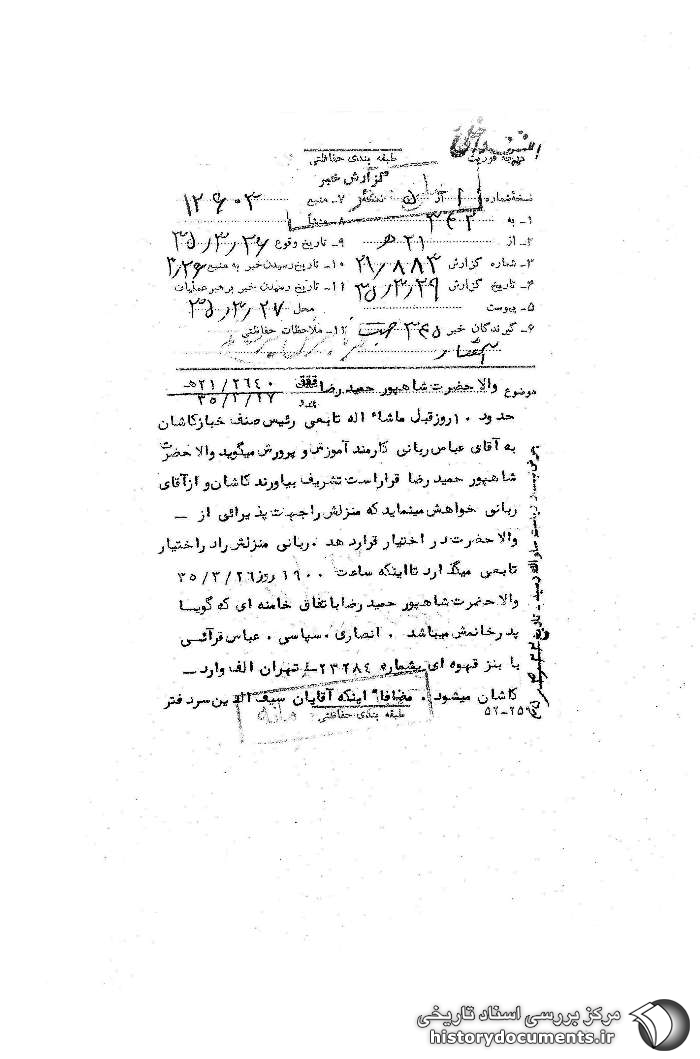 درجه فوریت
طبقه بندی حفاظتی
گزارش خبر
نسخه شماره ۱ از ۵ نسخه ۷ـ منبع ۱۲۶۰۳
۱ـ به ۳۴۲ ۸ـ منشأ
۲ـ از ۲۱ هـ ۹ـ تاریخ وقوع ۳۵/۳/۲۶
۳ـ شماره گزارش ۲۱/۸۸۳ ۱۰ـ تاریخ رسیدن خبر به منبع ۳/۲۶
۴ـ تاریخ گزارش ۳۵/۳/۲۹ ۱۱ـ تاریخ رسیدن خبر برهبر عملیات
۵ـ پیوست محل ۳۵/۳/۲۷
۶ـ گیرندگان خبر ۱۲ـ ملاحظات حفاظتی
موضوع والاحضرت شاهپور حمید رضا ۲۱/۲۶۴۰هـ
حدود ۱۰ روز قبل ماشاء اله تابعی رئیس صنف خباز کاشان
به آقای عباس ربانی کارمند آموزش و پرورش میگوید والا حضرت
شاهپور حمید رضا قراراست تشریف بیاورند کاشان و ازآقای
ربانی خواهش مینماید که منزلش را جهت پذیرائی از ـ
والا حضرت در اختیار قرارد هد . ربانی منزلش راد راختیار
تابعی میگذارد تااینکه ساعت ۱۹۰۰ روز ۳۵/۳/۲۶
والا حضرت شاهپور حمید رضا باتفاق خامنه ای که گویا
پدرخانمش میباشد . انصاری . سپاسی . عباس قرآئتی
با بنز قهوه ای بشماره ۲۳۲۸۴ ـ تهران الف وارد ـ
کاشان میشود . مضافا" اینکه آقایان سیف الدین سرد فتر
طبقه بندی حفاظتی
۵۲-۲۵
مرکز بررسی اسناد تاریخی
historydocuments.ir